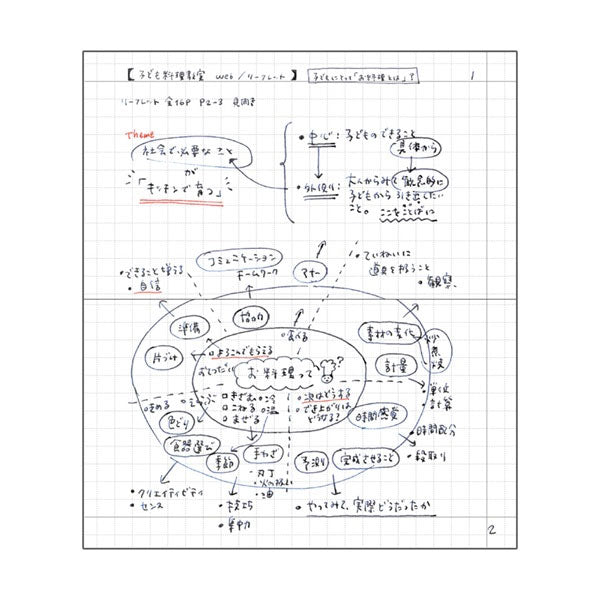 【子ども料理教室 web/リーフレット】
子どもにとって「お料理とは」?
1
リーフレット 全16P P2-3 見開き
Theme
社会で必要なこと
が
「キッチンで育つ」
・中心:子どものできること
具体から
・外側:大人からみて観念的に
子どもから引き出したい
こと。ここをことばに
コミュニケーション
チームワーク
マナー
・ていねいに
道具を扱うこと
・観察
・できることが増える
・自信
準備
協力
片づけ
食べる
素材の変化
炒
煮
焼
計量
・単位
計算
よろこんでもらえる
おてつだい
お料理って
?
きざむ
こねる
まぜる
次はどうする
でき上がりは
どうなる?
時間感覚
・時間配分
・段取り
色どり
食器選び
季節
手わざ
・刃丁
・火の扱い
・油
予測
完成させること
・クリエイティビティ
・センス
・技巧
・集中
・やってみて、実際どうだったか
2